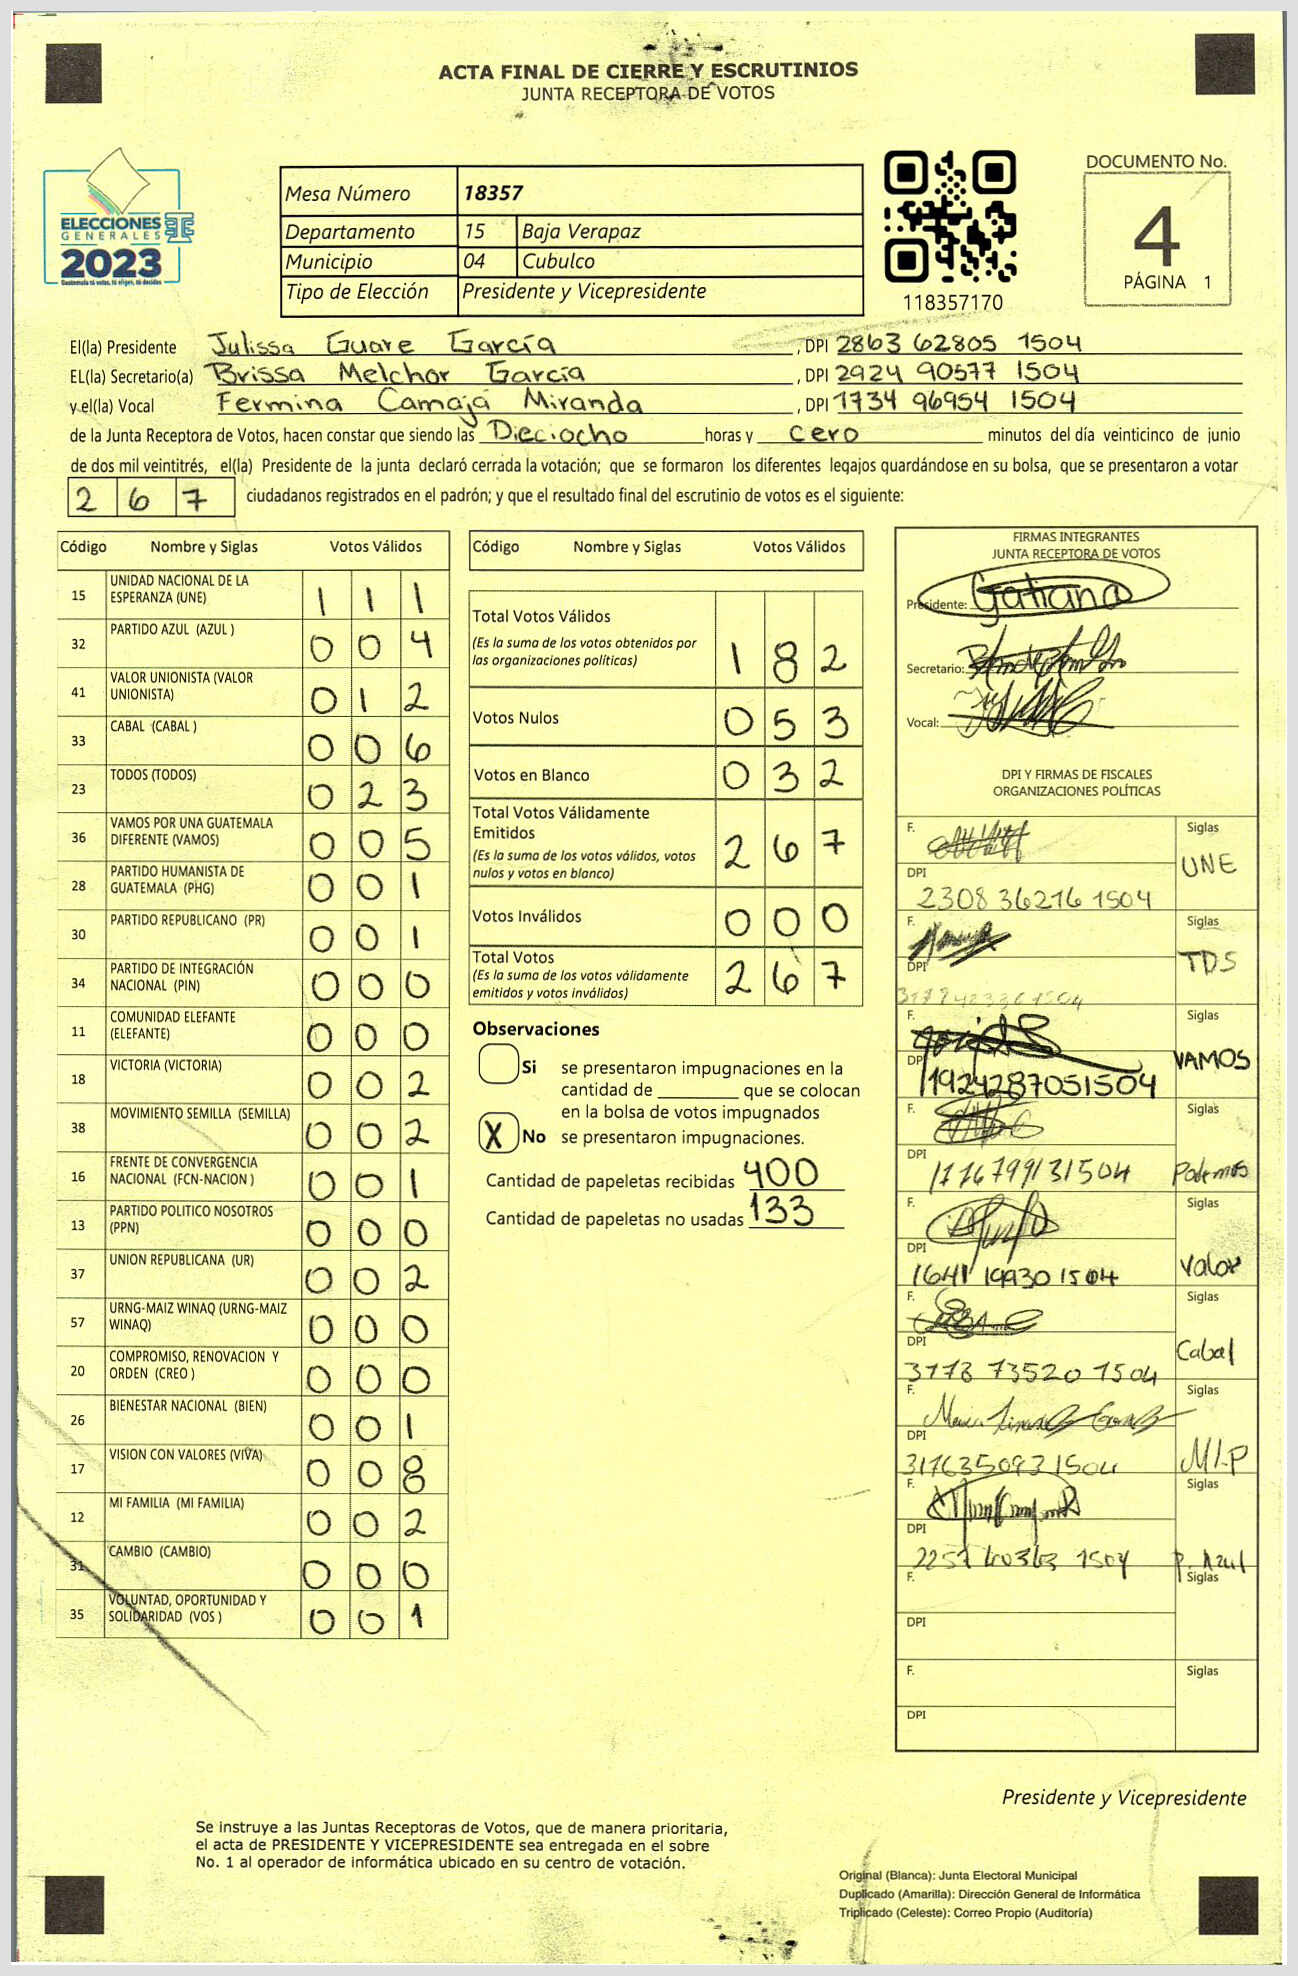 ACTA FINAL DE CIERRE Y ESCRUTINIOS
JUNTA RECEPTORA DE VOTOS
ELECCIONES
GENERALES
2023
Guatemala tú votas, tú eliges, tú decides
Mesa Número 18357
Departamento 15 Baja Verapaz
Municipio 04 Cubulco
Tipo de Elección Presidente y Vicepresidente
118357170
DOCUMENTO No.
4
PÁGINA 1
El(la) Presidente Julissa Guare García, DPI 2863 62805 1504
EL(la) Secretario(a) Brissa Melchor García, DPI 2924 90577 1504
y el(la) Vocal Fermina Camajá Miranda, DPI 1734 96954 1504
de la Junta Receptora de Votos, hacen constar que siendo las Dieciocho horas y cero minutos del día veinticinco de junio
de dos mil veintitrés, el(la) Presidente de la junta declaró cerrada la votación; que se formaron los diferentes legajos guardándose en su bolsa, que se presentaron a votar
2 6 7 ciudadanos registrados en el padrón; y que el resultado final del escrutinio de votos es el siguiente:
Código Nombre y Siglas Votos Válidos
15 UNIDAD NACIONAL DE LA ESPERANZA (UNE) 1 1 1
32 PARTIDO AZUL (AZUL ) 0 0 4
41 VALOR UNIONISTA (VALOR UNIONISTA) 0 1 2
33 CABAL (CABAL ) 0 0 6
23 TODOS (TODOS) 0 2 3
36 VAMOS POR UNA GUATEMALA DIFERENTE (VAMOS) 0 0 5
28 PARTIDO HUMANISTA DE GUATEMALA (PHG) 0 0 1
30 PARTIDO REPUBLICANO (PR) 0 0 1
34 PARTIDO DE INTEGRACIÓN NACIONAL (PIN) 0 0 0
11 COMUNIDAD ELEFANTE (ELEFANTE) 0 0 0
18 VICTORIA (VICTORIA) 0 0 2
38 MOVIMIENTO SEMILLA (SEMILLA) 0 0 2
16 FRENTE DE CONVERGENCIA NACIONAL (FCN-NACION ) 0 0 1
13 PARTIDO POLITICO NOSOTROS (PPN) 0 0 0
37 UNION REPUBLICANA (UR) 0 0 2
57 URNG-MAIZ WINAQ (URNG-MAIZ WINAQ) 0 0 0
20 COMPROMISO, RENOVACION Y ORDEN (CREO ) 0 0 0
26 BIENESTAR NACIONAL (BIEN) 0 0 1
17 VISION CON VALORES (VIVA) 0 0 8
12 MI FAMILIA (MI FAMILIA) 0 0 2
31 CAMBIO (CAMBIO) 0 0 0
35 VOLUNTAD, OPORTUNIDAD Y SOLIDARIDAD (VOS ) 0 0 1
Código Nombre y Siglas Votos Válidos
Total Votos Válidos 1 8 2
(Es la suma de los votos obtenidos por
las organizaciones políticas)
Votos Nulos 0 5 3
Votos en Blanco 0 3 2
Total Votos Válidamente
Emitidos 2 6 7
(Es la suma de los votos válidos, votos
nulos y votos en blanco)
Votos Inválidos 0 0 0
Total Votos 2 6 7
(Es la suma de los votos válidamente
emitidos y votos inválidos)
Observaciones
Si se presentaron impugnaciones en la
cantidad de ________ que se colocan
en la bolsa de votos impugnados
X No se presentaron impugnaciones.
Cantidad de papeletas recibidas 400
Cantidad de papeletas no usadas 133
FIRMAS INTEGRANTES
JUNTA RECEPTORA DE VOTOS
Presidente:
Secretario:
Vocal:
DPI Y FIRMAS DE FISCALES
ORGANIZACIONES POLÍTICAS
F. Siglas
UNE
DPI
2308 36216 1504
F. Siglas
TDS
DPI
F. Siglas
VAMOS
DPI
1924287051504
F. Siglas
DPI
1776799131504 Podemos
F. Siglas
DPI
1641 19930 1504 Valor
F. Siglas
DPI Cabal
3178 73520 1504
F. Siglas
DPI
3176350931504 MLP
F. Siglas
DPI
2257 40363 1504 P. Azul
F. Siglas
DPI
F. Siglas
DPI
Presidente y Vicepresidente
Se instruye a las Juntas Receptoras de Votos, que de manera prioritaria,
el acta de PRESIDENTE Y VICEPRESIDENTE sea entregada en el sobre
No. 1 al operador de informática ubicado en su centro de votación.
Original (Blanca): Junta Electoral Municipal
Duplicado (Amarilla): Dirección General de Informática
Triplicado (Celeste): Correo Propio (Auditoría)